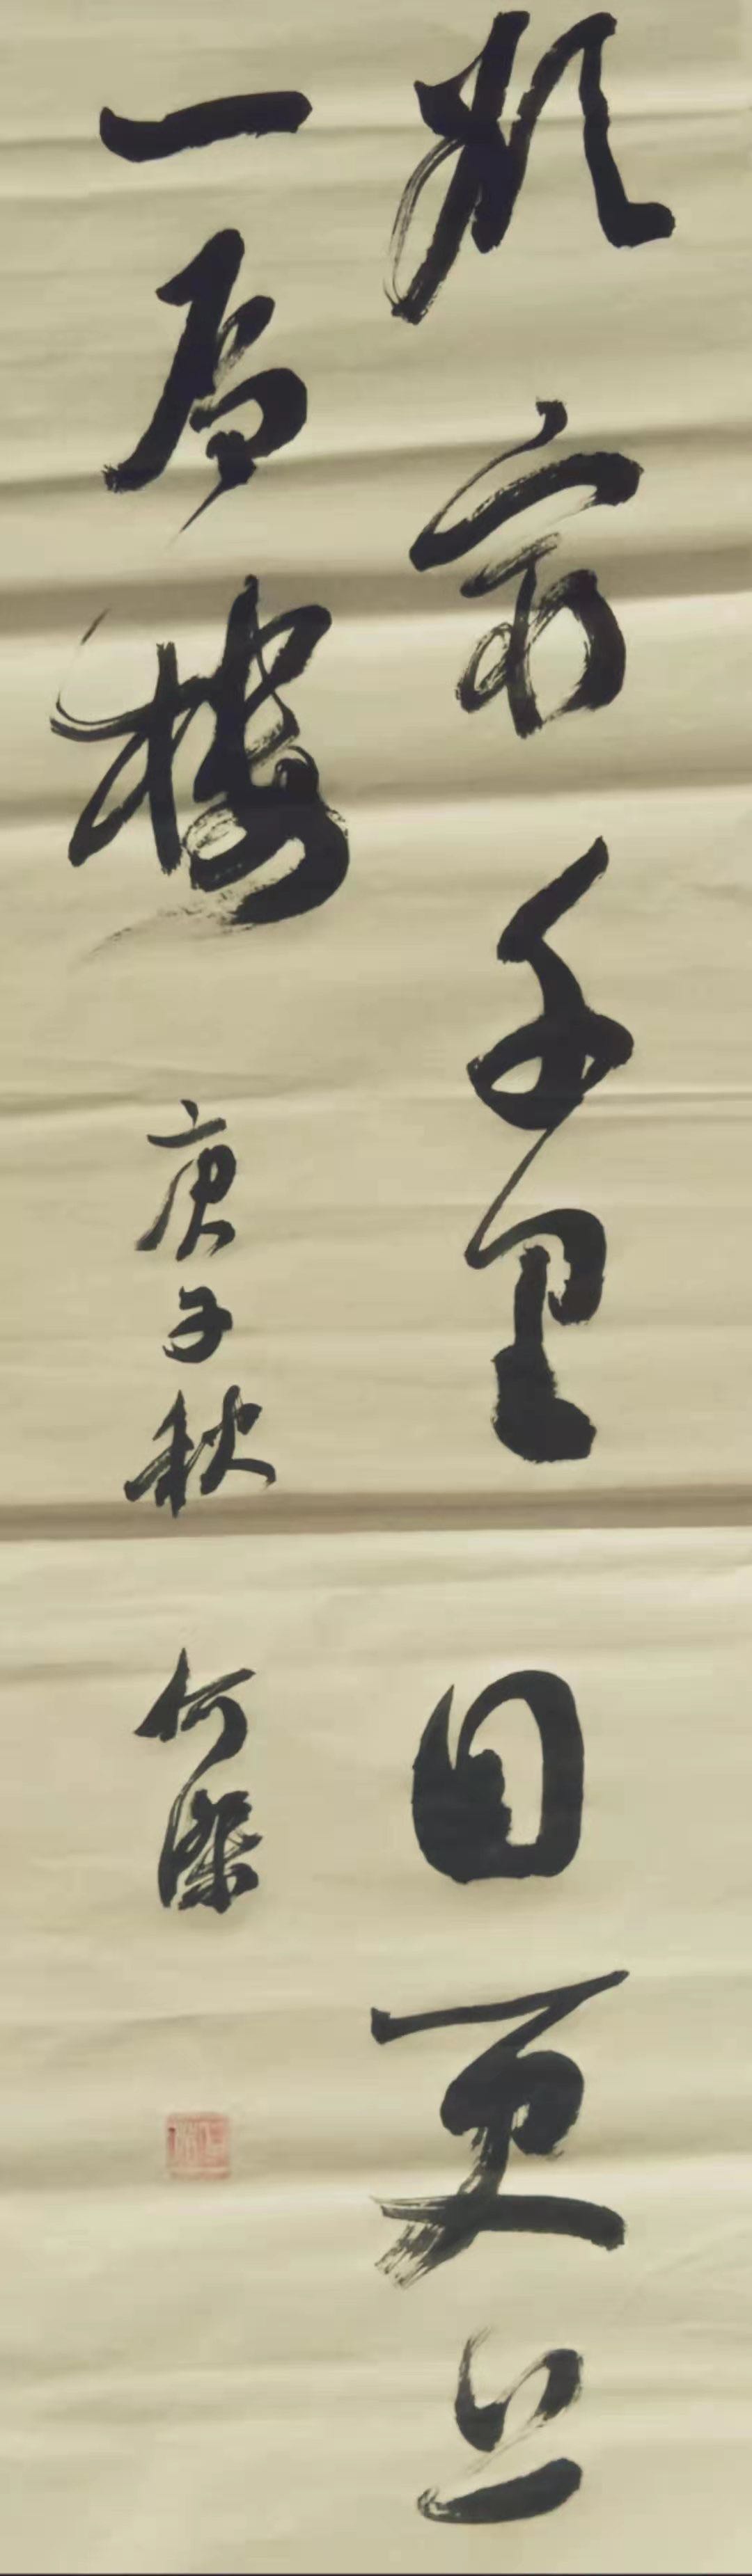 欲穷千里目更上
一层楼 庚子秋 何杰